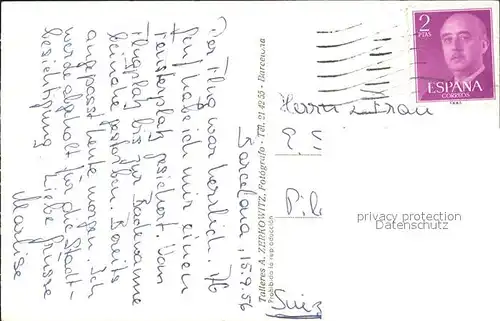 Barcelona, 15.9.56
Der Flug war herrlich. Ab
Genf habe ich mir einen
Fensterplatz gesichert. Vom
Flugplatz bis zur Badewanne
beinahe Bereits
angepasst heute morgen. Ich
werde abgeholt für die Stadt-
besichtigung Liebe Grüsse
Marlise
Talleres A. ZERKOWITZ, Fotógrafo - Tel. 21 42 55 - Barcelona
Prohibida la reproducción
2
PTAS
ESPAÑA
CORREOS
Herrn u. Frau
privacy protection
Datenschutz